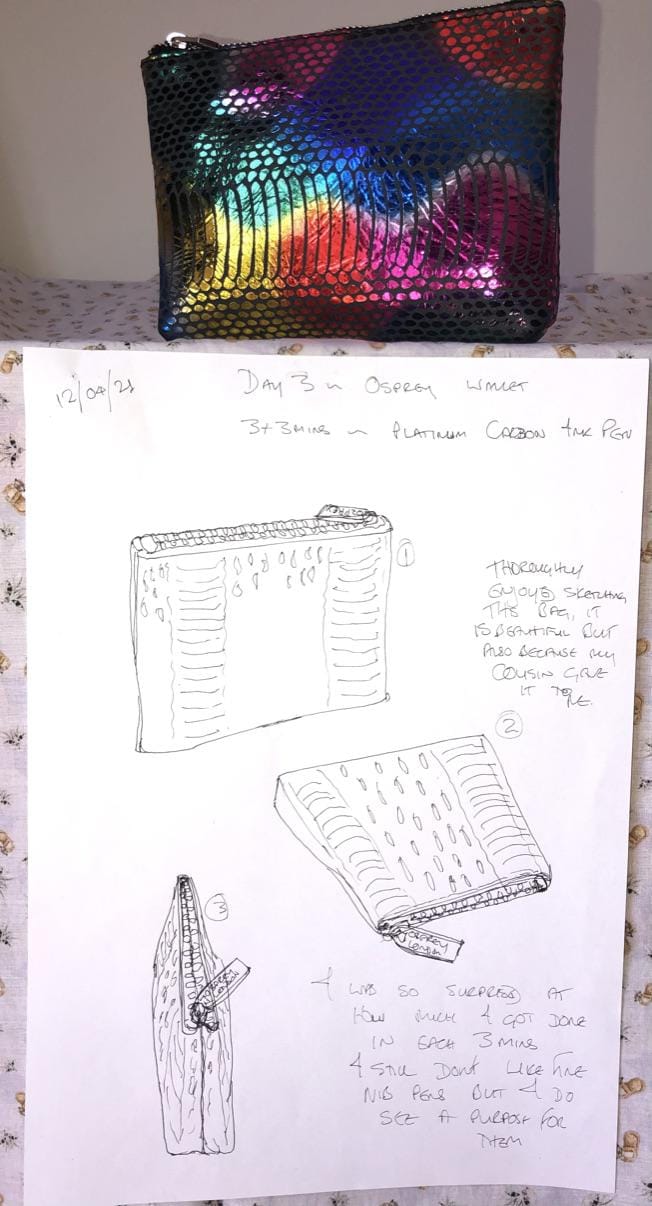 12/04/21
DAY 3 ~ OSPREY WALLET
3+3 MINS ~ PLATINUM CARBON INK PEN
OSPREY
1
THOROUGHLY
ENJOYED SKETCHING
THIS BAG, IT
IS BEAUTIFUL BUT
ALSO BECAUSE MY
COUSIN GAVE
IT TO ME.
2
OSPREY
LONDON
3
I WAS SO SURPRISED AT
HOW MUCH I GOT DONE
IN EACH 3 MINS
I STILL DON'T LIKE FINE
NIB PENS BUT I DO
SEE A PURPOSE FOR
THEM